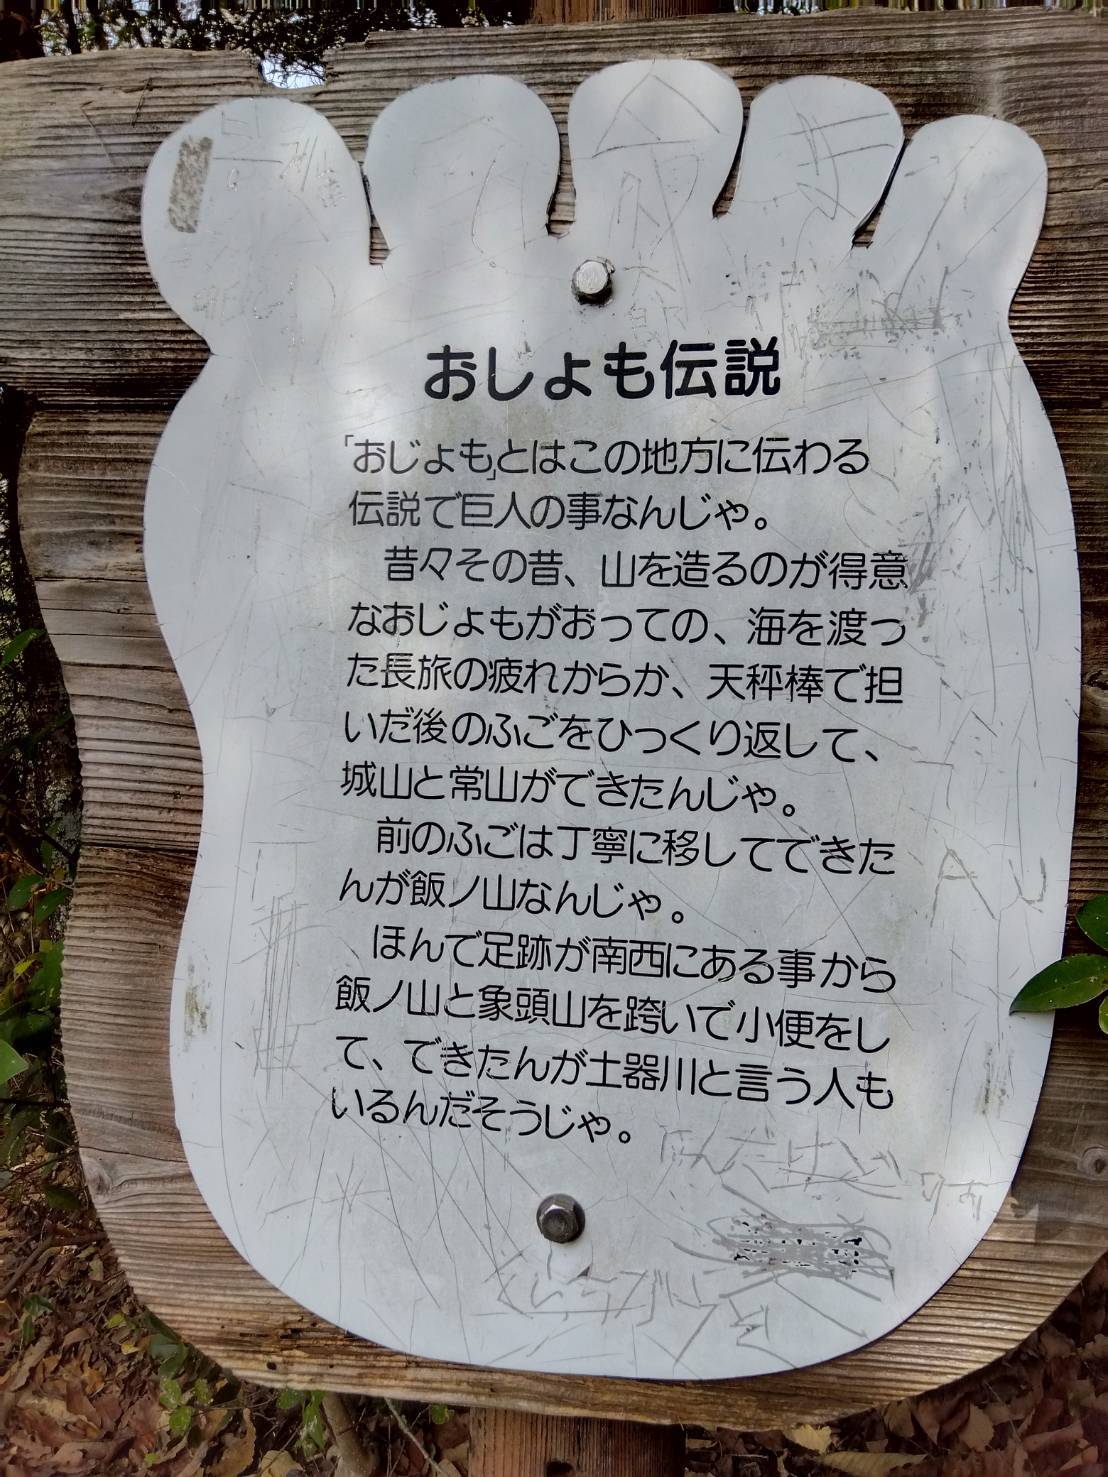 おしょも伝説
「おじょも」とはこの地方に伝わる
伝説で巨人の事なんじゃ。
昔々その昔、山を造るのが得意
なおじょもがおっての、海を渡っ
た長旅の疲れからか、天秤棒で担
いだ後のふごをひっくり返して、
城山と常山ができたんじゃ。
前のふごは丁寧に移してできた
んが飯ノ山なんじゃ。
ほんで足跡が南西にある事から
飯ノ山と象頭山を跨いで小便をし
て、できたんが土器川と言う人も
いるんだそうじゃ。